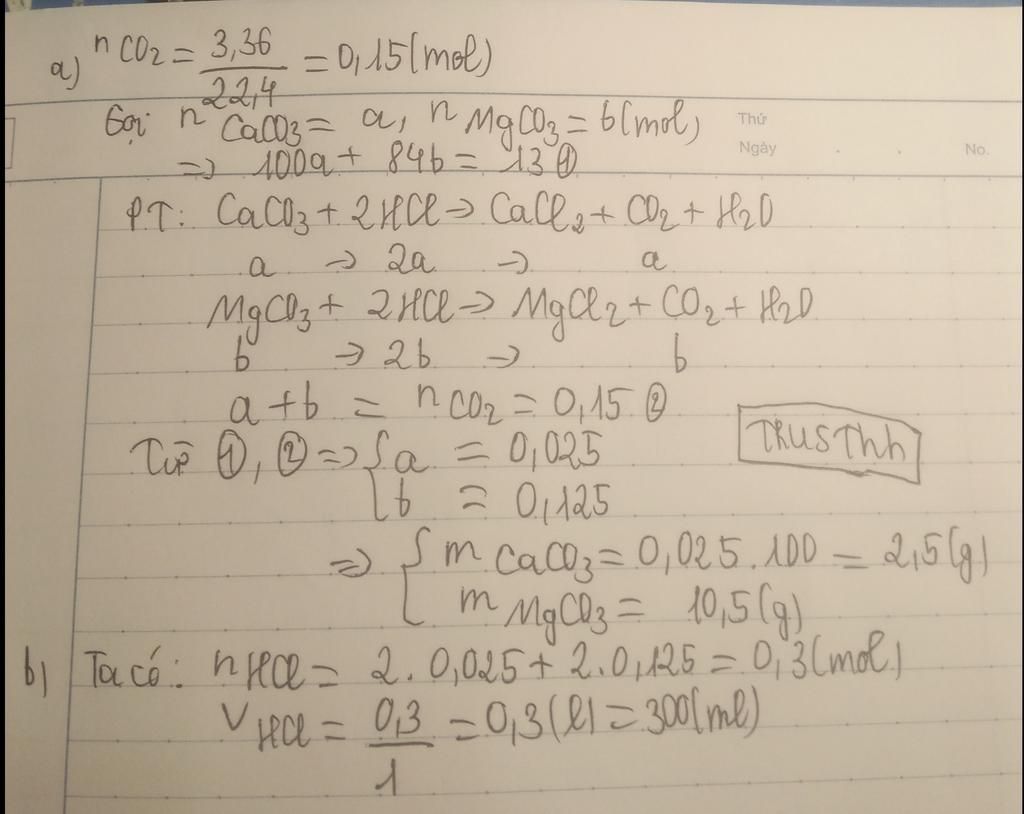 a) nCO2 = 3,36/22,4 = 0,15(mol)
Gọi nCaCO3 = a, nMgCO3 = b(mol)
Thứ
Ngày . . No.
=> 100a + 84b = 13 ①
PT: CaCO3 + 2HCl → CaCl2 + CO2 + H2O
a → 2a → a
MgCO3 + 2HCl → MgCl2 + CO2 + H2O
b → 2b → b
a + b = nCO2 = 0,15 ②
TRUSThh
Từ ①, ② => { a = 0,025
b = 0,125
=> { mCaCO3 = 0,025.100 = 2,5(g)
mMgCO3 = 10,5(g)
b) Ta có: nHCl = 2.0,025 + 2.0,125 = 0,3(mol)
VHCl = 0,3/1 = 0,3(l) = 300(ml)